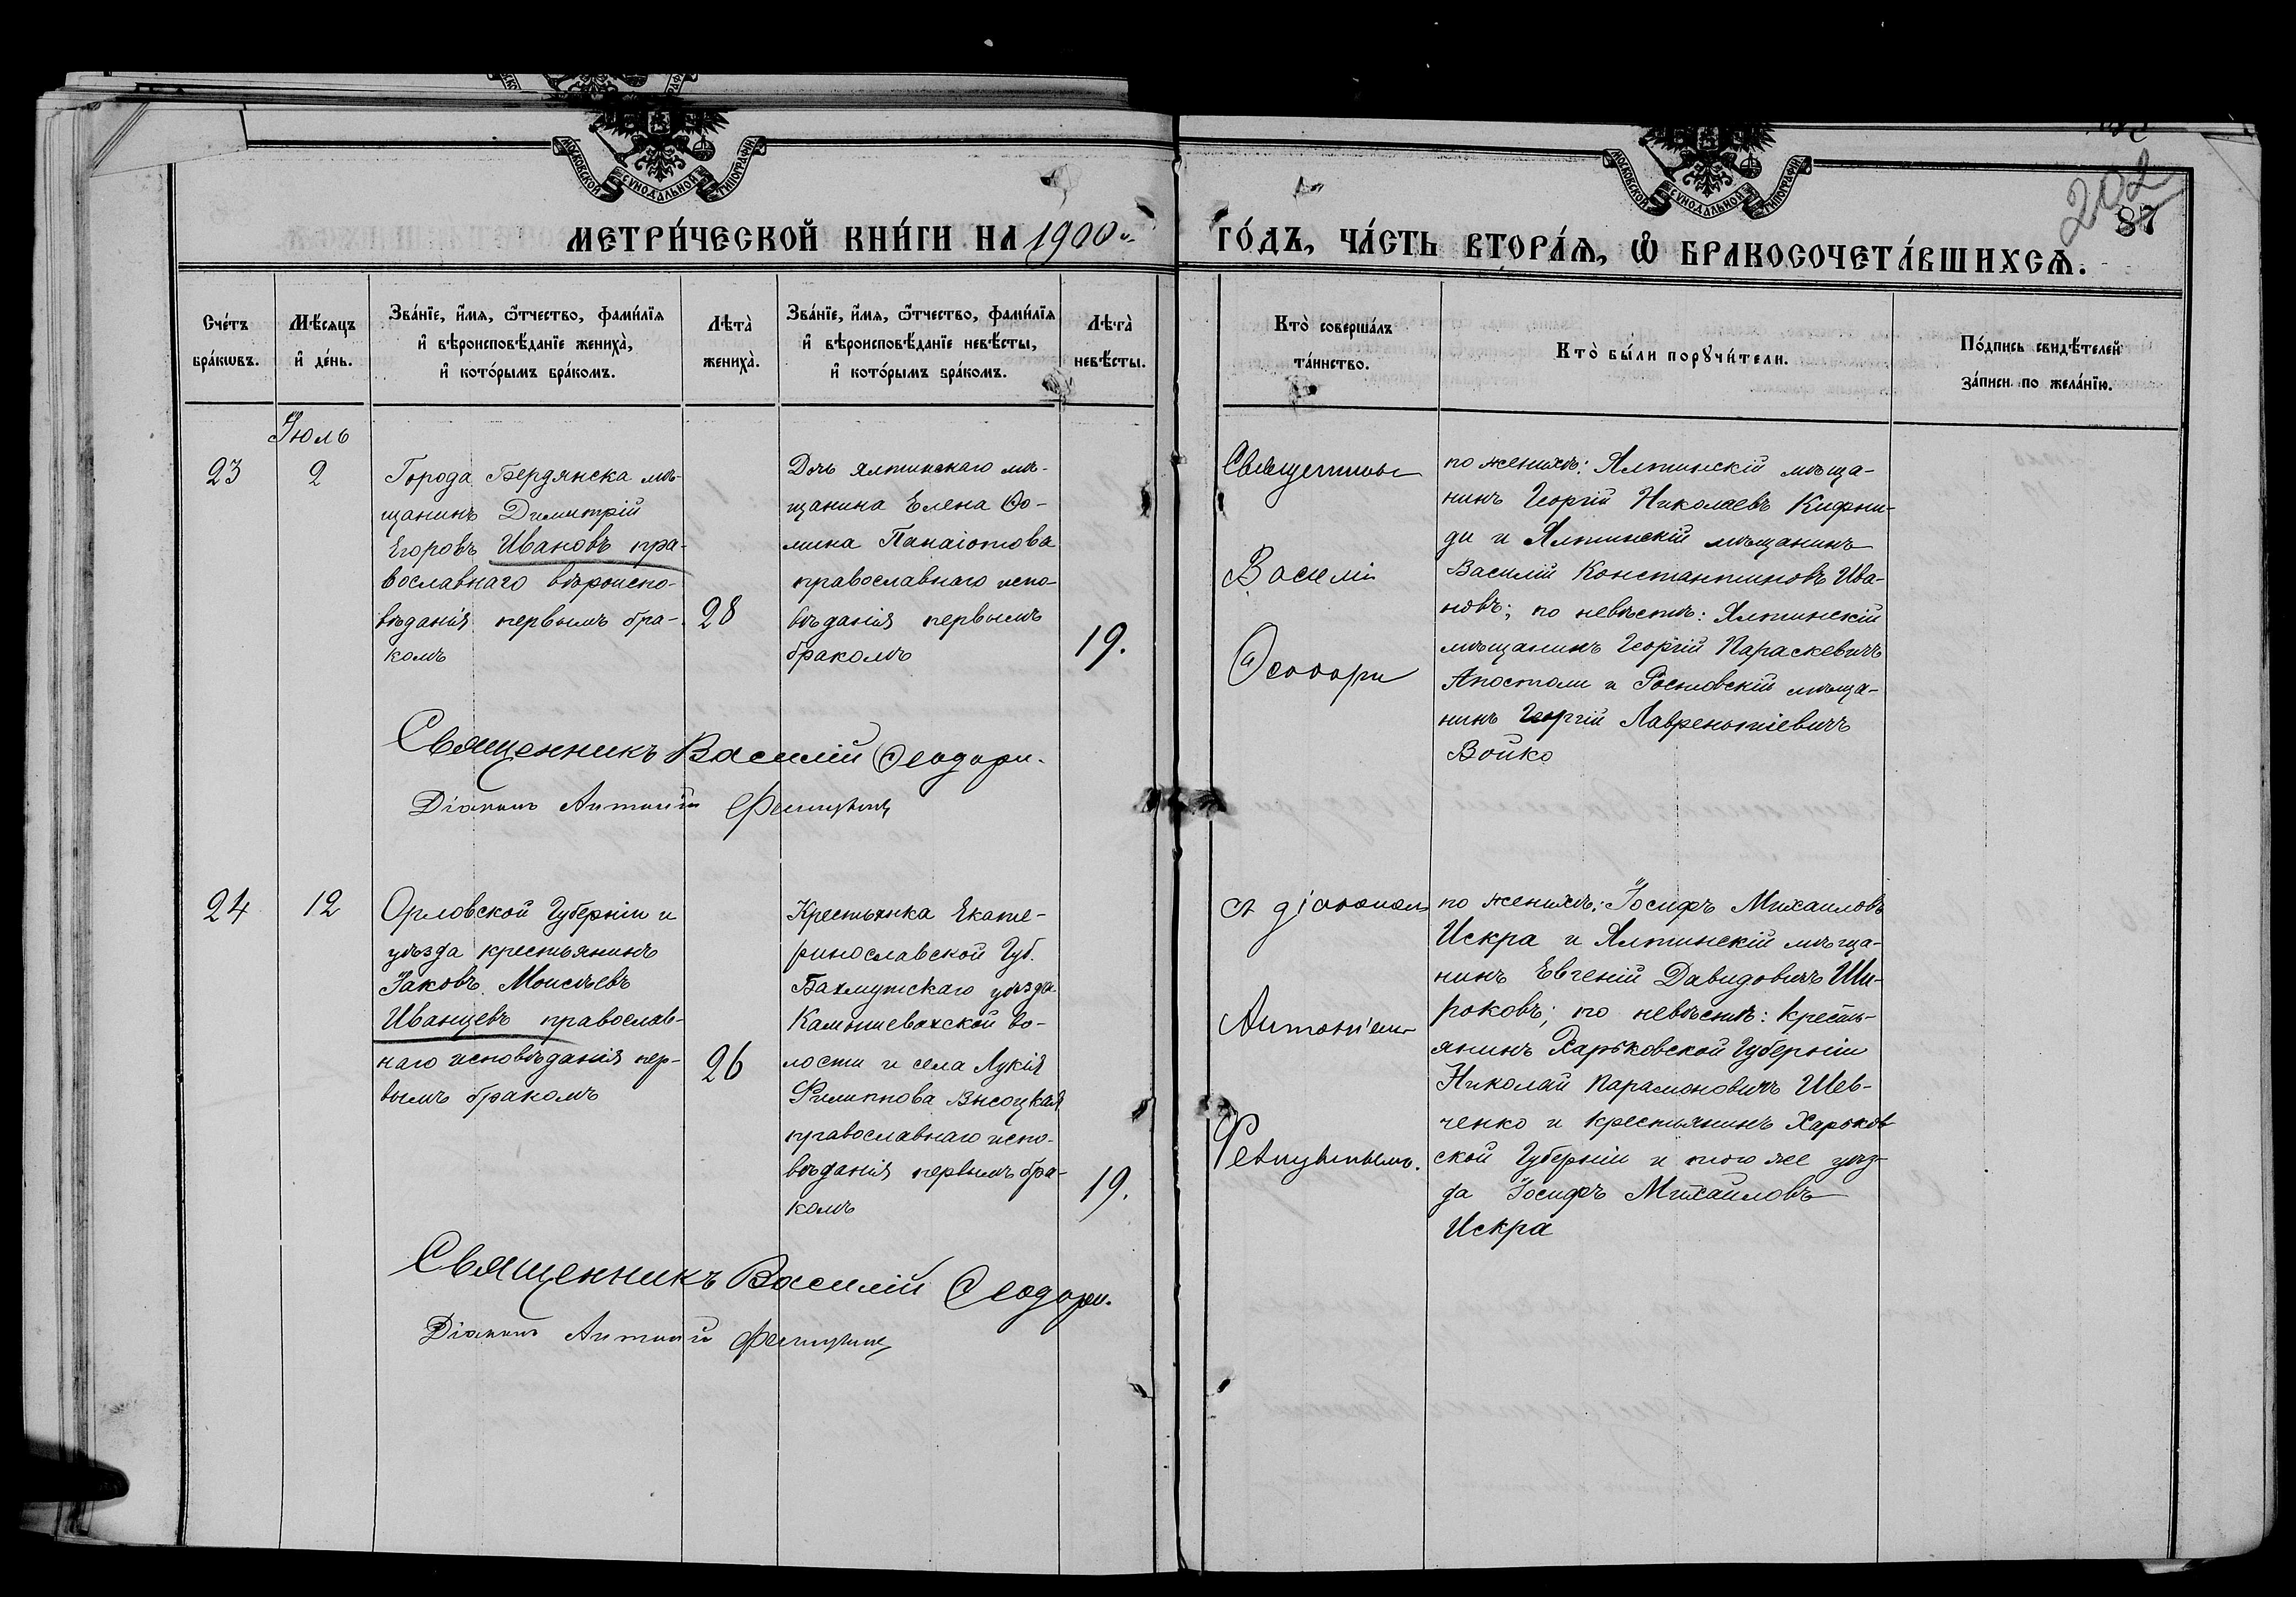 МОСКОВСКОЙ СУНОДАЛЬНОЙ ТИПОГРАФІИ
МОСКОВСКОЙ СУНОДАЛЬНОЙ ТИПОГРАФІИ
202
87
МЕТРИ́ЧЕСКОЙ КНИ́ГИ НА 1900й
ГО́ДЪ, ЧА́СТЬ ВТОРА́Ѧ, Ѿ БРАКОСОЧЕТА́ВШИХСѦ.
Сче́тъ
бра́кѡвъ.
Мѣ́сяцъ
и҆ де́нь.
Зва́нїе, и҆́мя, ѻ҆́тчество, фами́лїя
и҆ вѣроисповѣ́данїе жениха̀,
и҆ кото́рымъ бра́комъ.
Лѣта̀
жениха̀.
Зва́нїе, и҆́мя, ѻ҆́тчество, фами́лїя
и҆ вѣроисповѣ́данїе невѣ́сты,
и҆ кото́рымъ бра́комъ.
Лѣта̀
невѣ́сты.
Кто̀ соверша́лъ
та́инство.
Кто̀ бы́ли порꙋчи́тели.
По́дпись свидѣ́телей
за́писи по жела́нїю.
Іюль
23
2
Города Бердянска мѣ-
щанинъ Димитрій
Егоровъ Ивановъ пра-
вославнаго вѣроиспо-
вѣданія первымъ бра-
комъ
28
Дочь ялтинскаго мѣ-
щанина Елена Ѳо-
мина Панаіотова
православнаго испо-
вѣданія первымъ
бракомъ
19.
Священникъ
Василій
Ѳеодори
по женихѣ: Ялтинскій мѣща-
нинъ Георгій Николаевъ Кифни-
ди и Ялтинскій мѣщанинъ
Василій Константиновъ Ива-
новъ; по невѣстѣ: Ялтинскій
мѣщанинъ Георгій Параскевичъ
Апостоли и Росновскій мѣща-
нинъ Георгій Лаврентіевичъ
Бойко
Священникъ Василій Ѳеодори.
Діаконъ Антоній
24
12
Орловской Губерніи и
уѣзда крестьянинъ
Іаковъ Моисѣевъ
Иванцевъ православ-
наго исповѣданія пер-
вымъ бракомъ
26
Крестьянка Екате-
ринославской Губ.
Бахмутскаго уѣзда
Камышевахской во-
лости и села Лукія
Филиппова Высоцкая
православнаго испо-
вѣданія первымъ бра-
комъ
19.
съ діакономъ
Антоніемъ
по женихѣ: Іосифъ Михаиловъ
Искра и Ялтинскій мѣща-
нинъ Евгеній Давидовичъ Ши-
роковъ; по невѣстѣ: кресть-
янинъ Харьковской Губерніи
Николай Парамоновичъ Шев-
ченко и крестьянинъ Харьков
ской Губерніи и того же уѣз-
да Іосифъ Михаиловъ
Искра
Священникъ Василій Ѳеодори.
Діаконъ Антоній